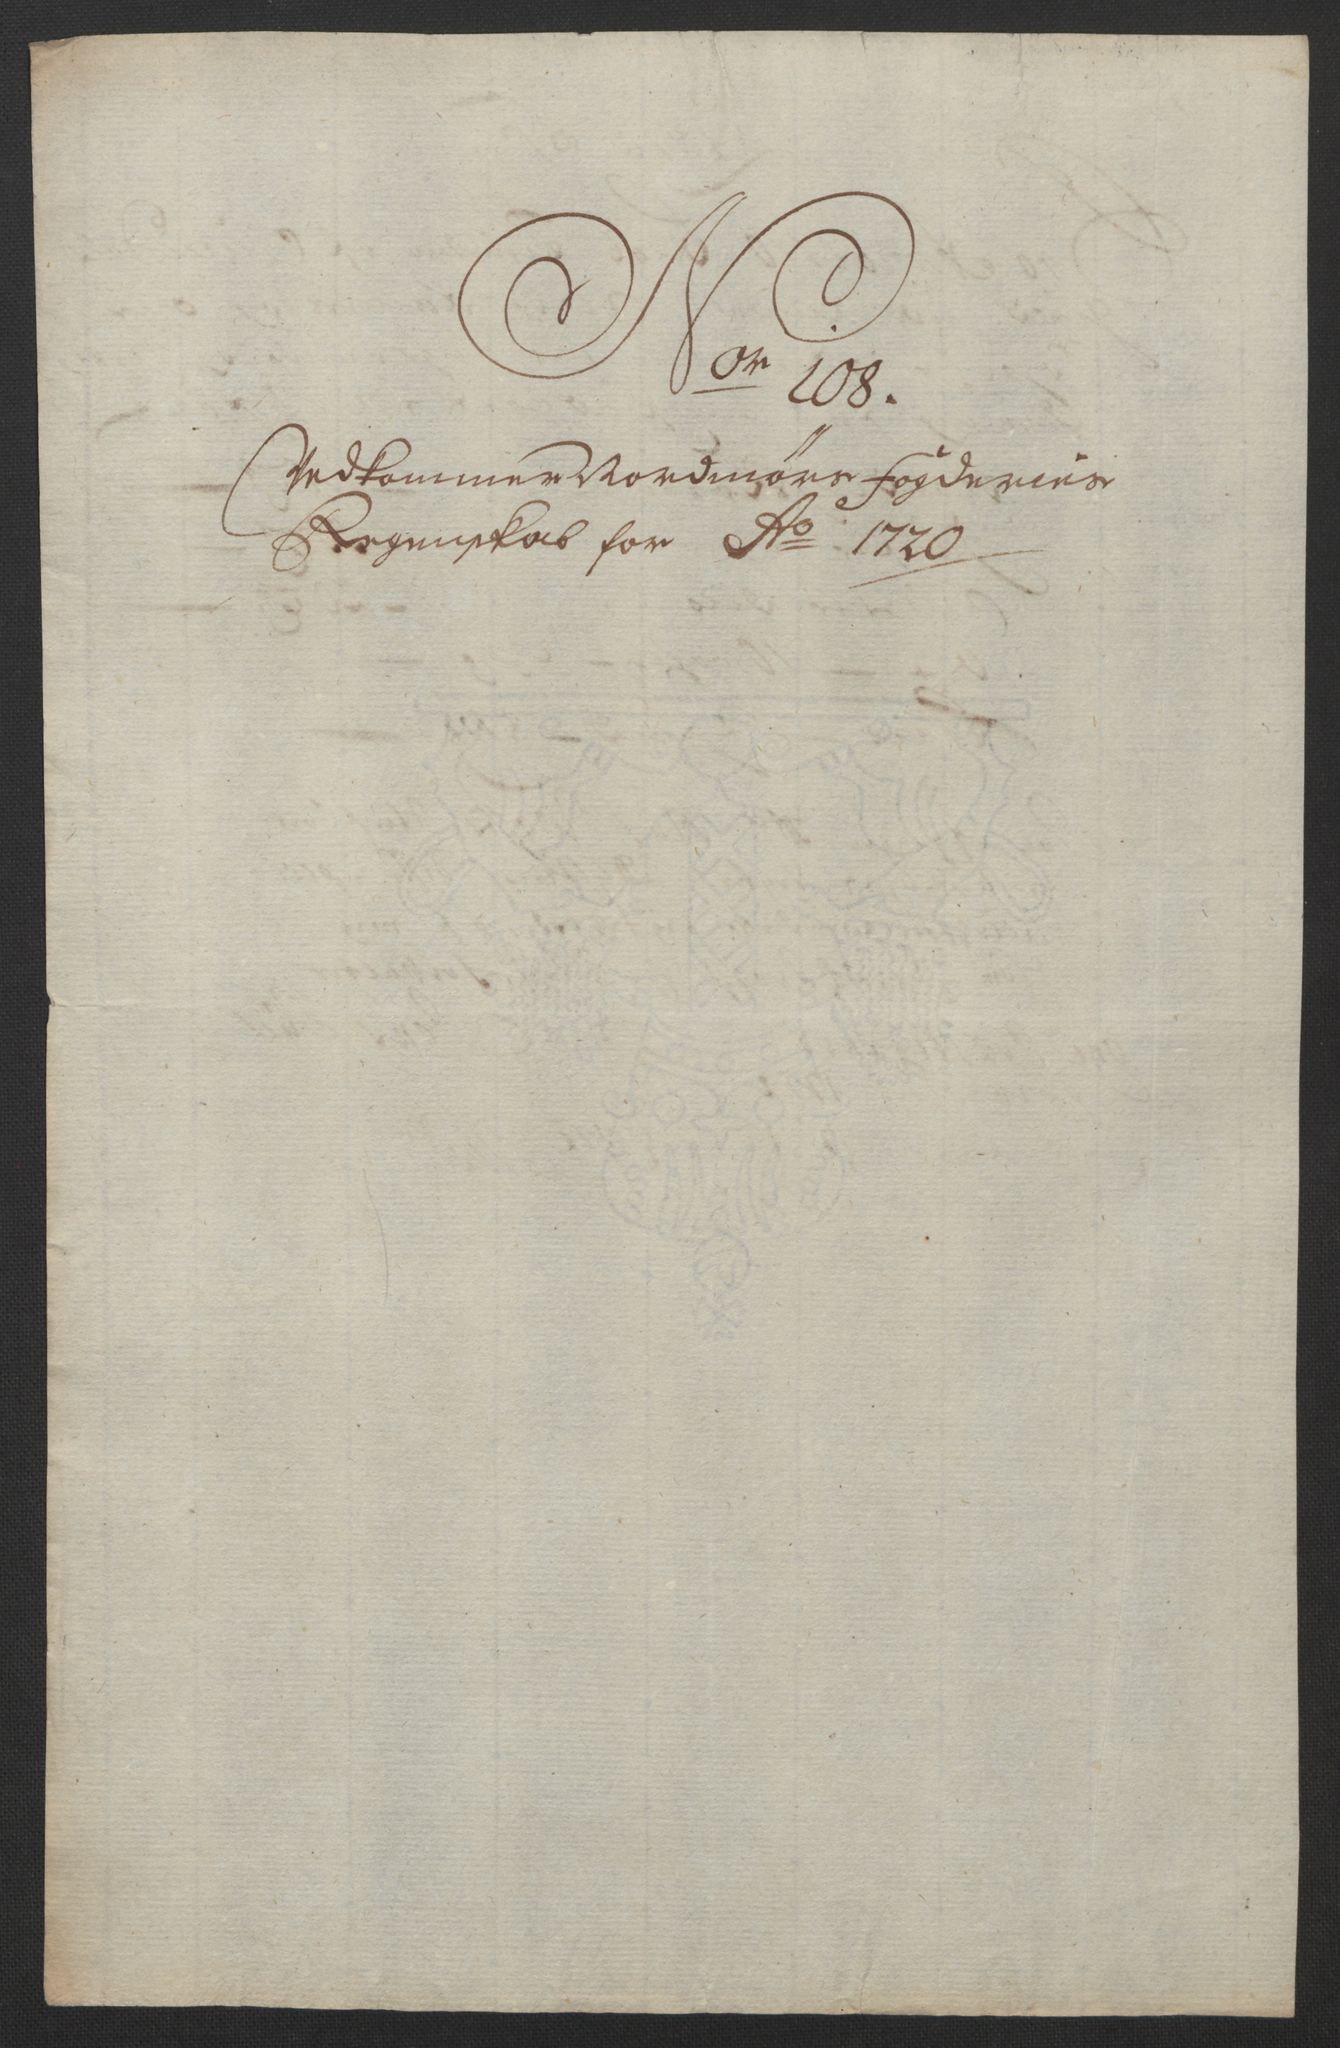 Nor 108.
Vedkommer Nordmørs fogderies
Regenskab for Ao 1720